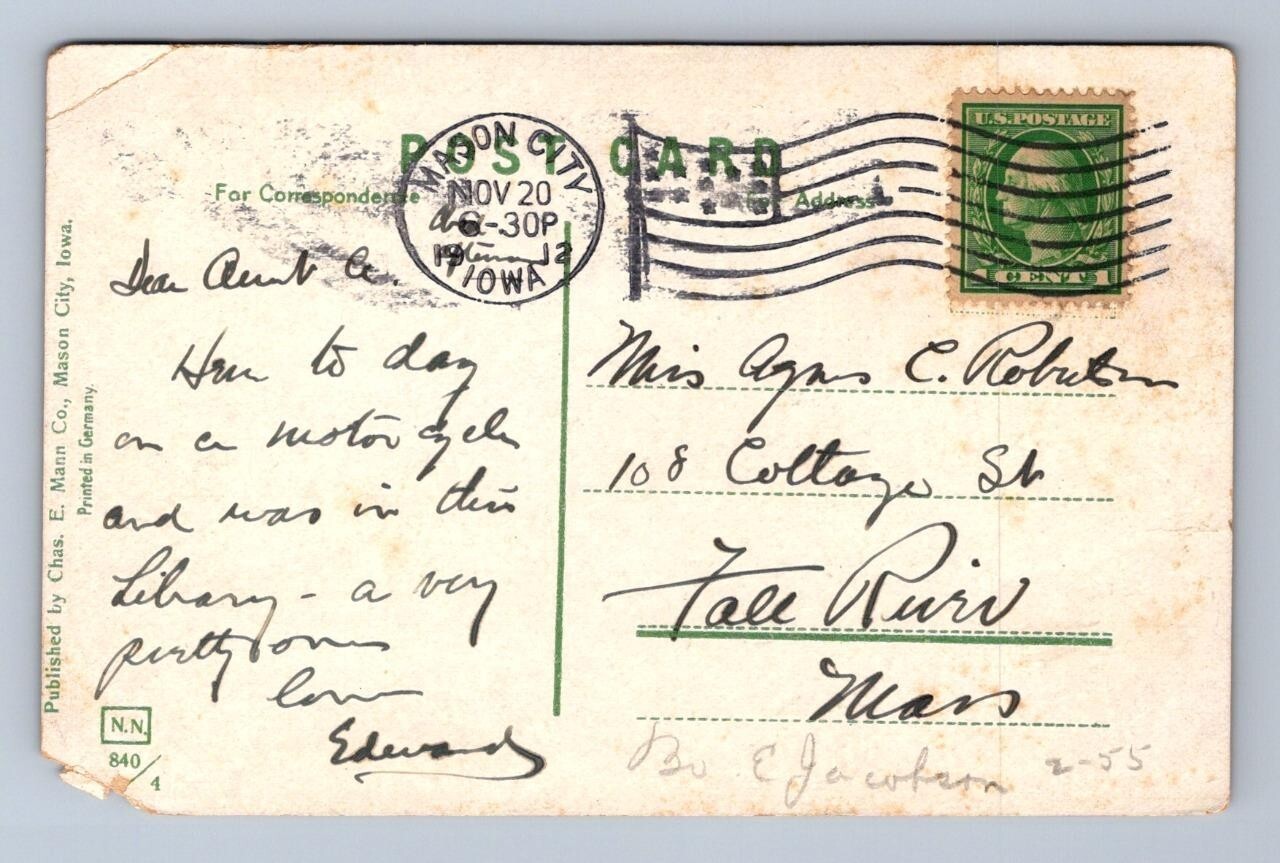 POST CARD
For Correspondence
Address
MASON CITY
NOV 20
6-30P
1912
IOWA
U.S.POSTAGE
1 CENT 1
Dear Aunt A.
Here to day
on a motor cycle
and was in this
Library - a very
pretty one
love
Edward
Miss Agnes C. Robertson
108 Cottage St
Fall River
Mass
Bo E Jacobson 2-55
Published by Chas. E. Mann Co., Mason City, Iowa.
Printed in Germany.
N.N.
840/4